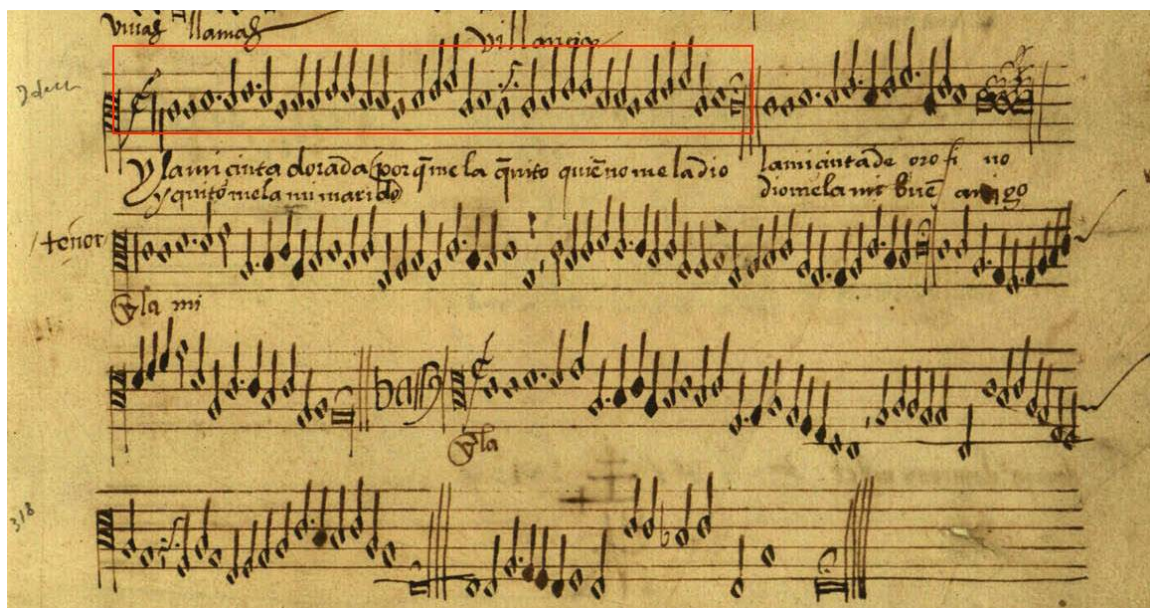 vivas llamas
villancico
Y la mi cinta dorada porq̃ me la q̃ito quiẽ no me la dio la mi cinta de oro fi no
y quitomela mi marido diomela mi buẽ amigo
tenor
Y la mi
bass
Y la
318